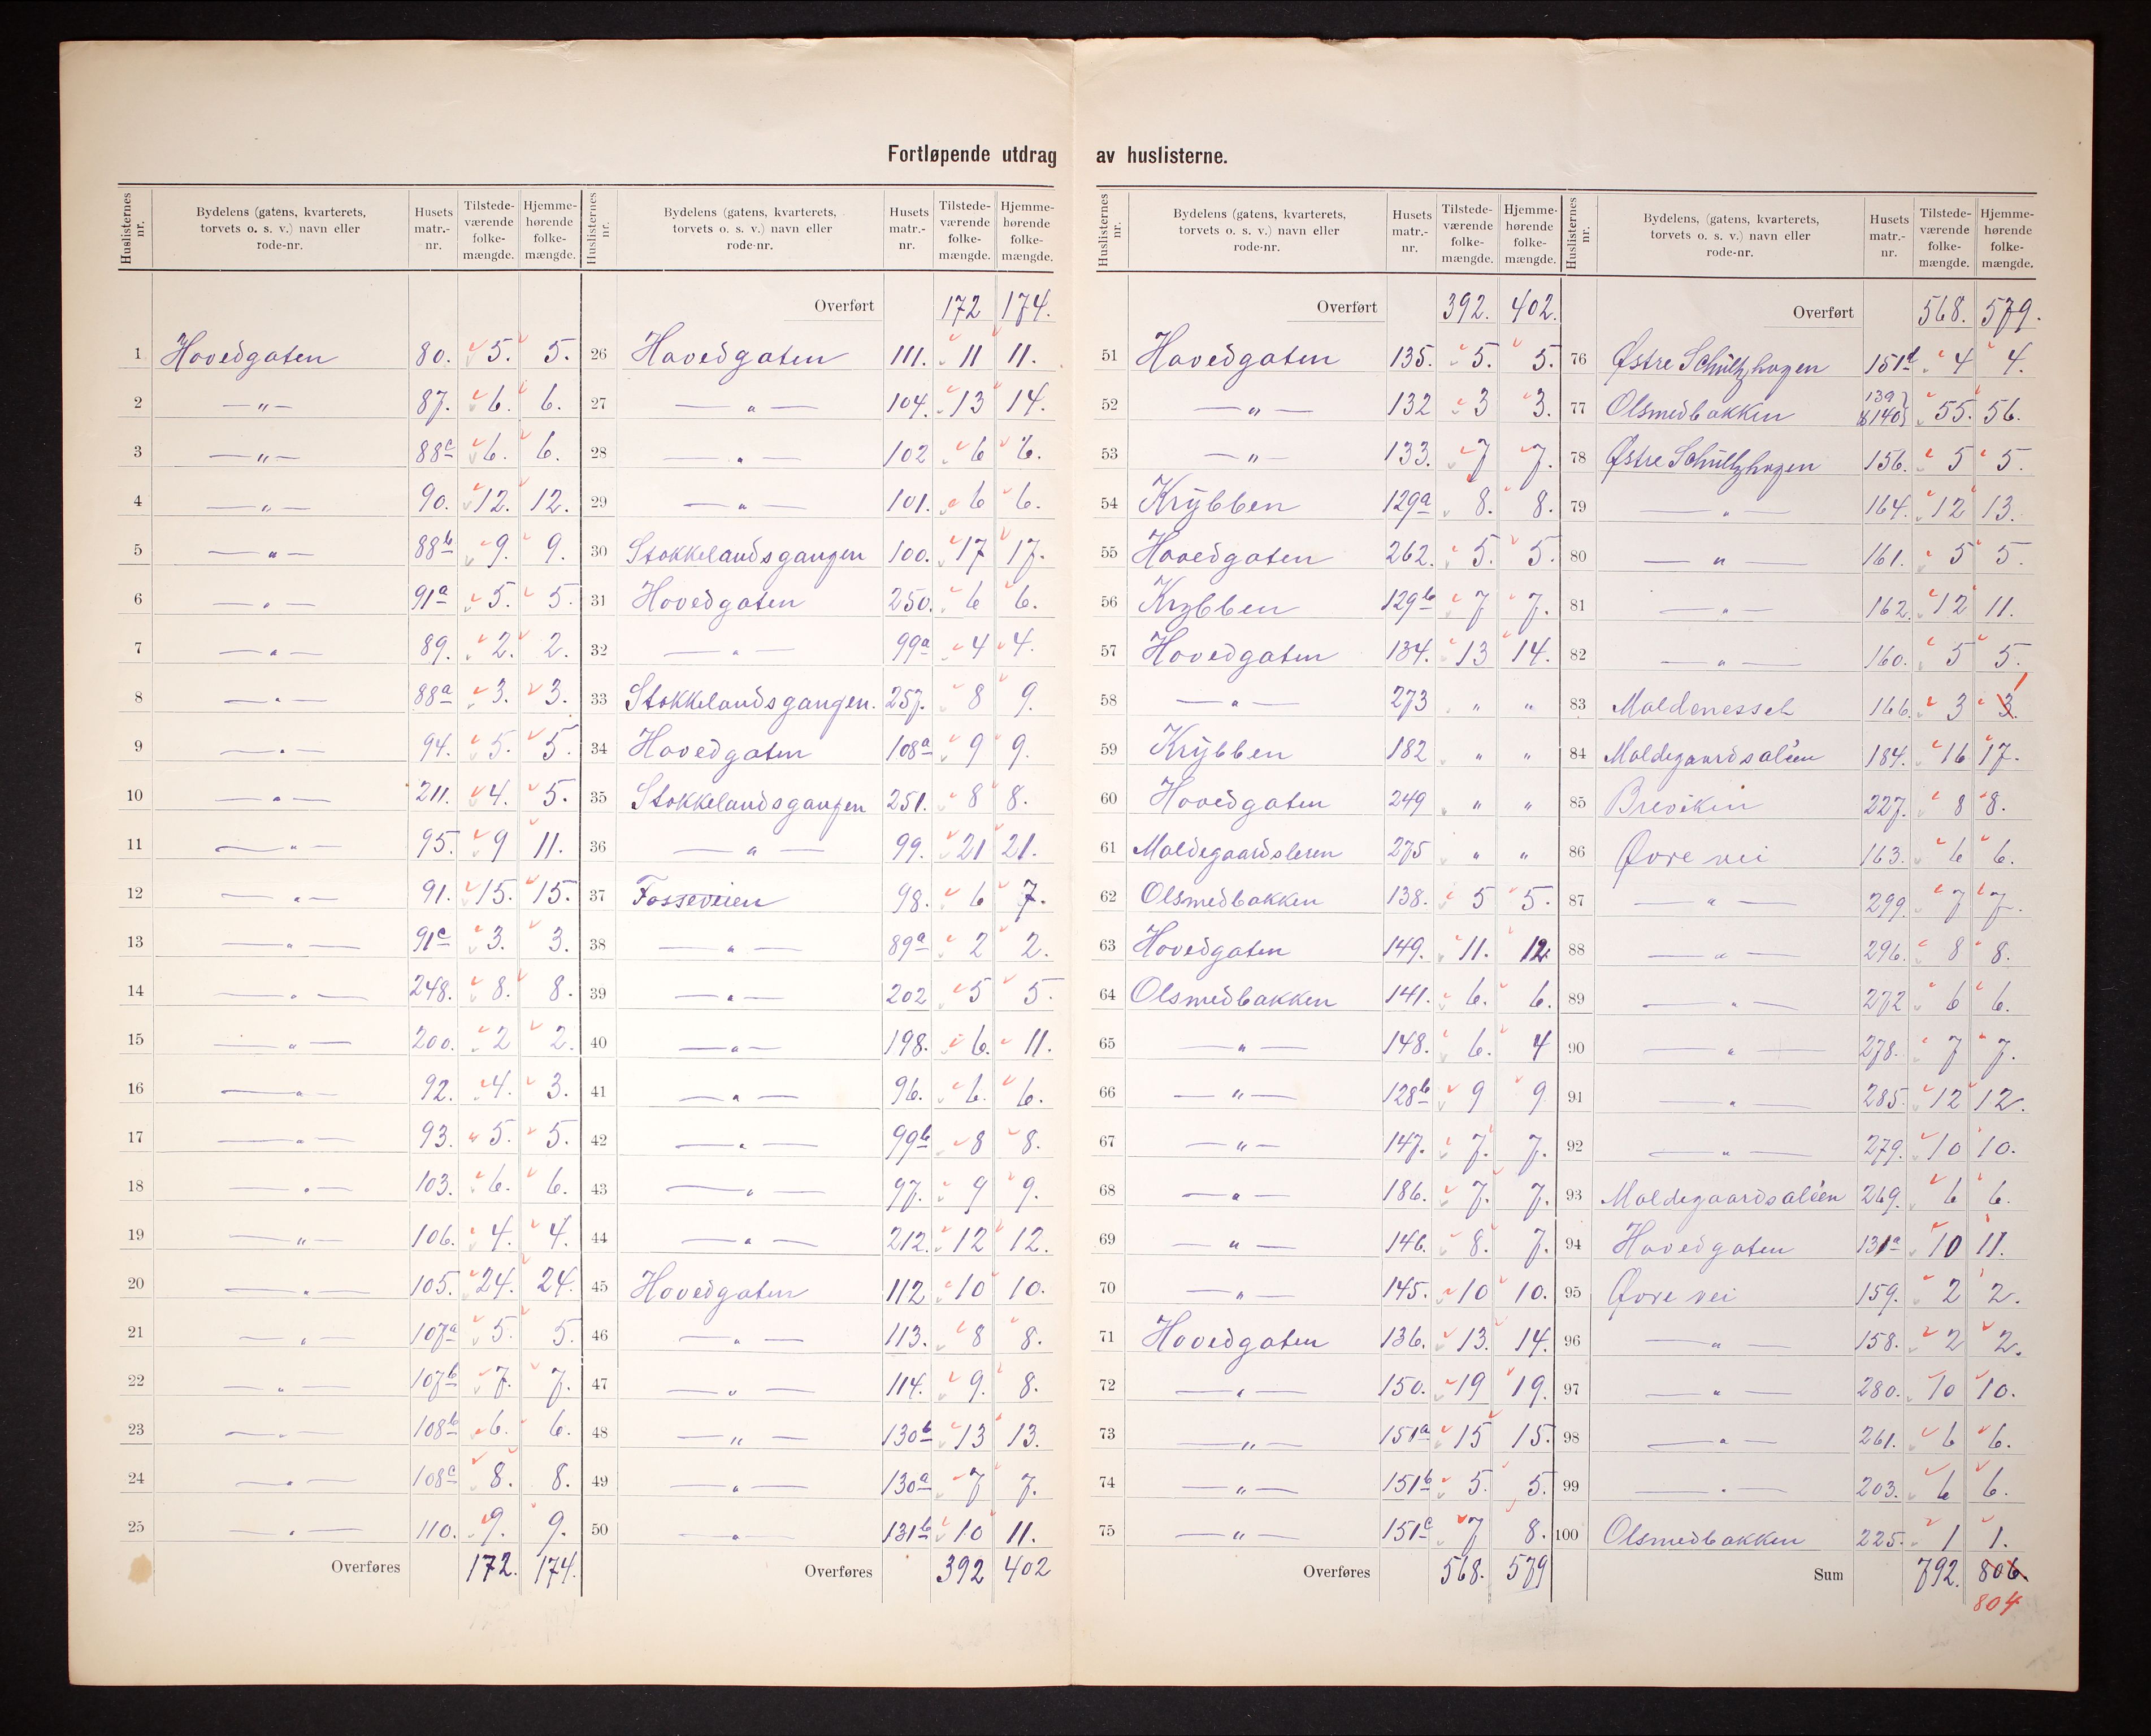 Fortløpende utdrag av huslisterne.
Huslisternes nr. Bydelens (gatens, kvarterets, torvets o. s. v.) navn eller rode-nr. Husets matr.-nr. Tilstedeværende folkemængde. Hjemmehørende folkemængde.
1 Hovedgaten 80. 5. 5.
2 —"— 87. 6. 6.
3 —"— 88c 6. 6.
4 —"— 90. 12. 12.
5 —"— 88b 9. 9.
6 —"— 91a 5. 5.
7 —"— 89. 2. 2.
8 —"— 88a 3. 3.
9 —"— 94. 5. 5.
10 —"— 211. 4. 5.
11 —"— 95. 9 11.
12 —"— 91. 15. 15.
13 —"— 91c 3. 3.
14 —"— 248. 8. 8.
15 —"— 200. 2 2.
16 —"— 92. 4. 3.
17 —"— 93. 5. 5.
18 —"— 103. 6. 6.
19 —"— 106. 4. 4.
20 —"— 105. 24. 24.
21 —"— 107a 5. 5.
22 —"— 107b 7. 7.
23 —"— 108b 6. 6.
24 —"— 108c 8. 8.
25 —"— 110. 9. 9.
Overføres 172. 174.
Huslisternes nr. Bydelens (gatens, kvarterets, torvets o. s. v.) navn eller rode-nr. Husets matr.-nr. Tilstedeværende folkemængde. Hjemmehørende folkemængde.
Overført 172 174.
26 Hovedgaten 111. 11 11.
27 —"— 104. 13 14.
28 —"— 102 6 6.
29 —"— 101. 6 6.
30 Stokkelandsgangen 100. 17 17.
31 Hovedgaten 250. 6 6.
32 —"— 99a 4 4.
33 Stokkelandsgangen. 257. 8 9.
34 Hovedgaten 108a 9 9.
35 Stokkelandsgangen 251. 8 8.
36 —"— 99. 21 21.
37 Fosseveien 98. 6 7.
38 —"— 89a 2 2.
39 —"— 202 5 5.
40 —"— 198. 6. 11.
41 —"— 96. 6. 6.
42 —"— 99b 8 8.
43 —"— 97. 9 9.
44 —"— 212. 12 12.
45 Hovedgaten 112 10 10.
46 —"— 113. 8 8.
47 —"— 114. 9. 8.
48 —"— 130b 13 13.
49 —"— 130a 7 7.
50 —"— 131b 10 11.
Overføres 392 402
Huslisternes nr. Bydelens (gatens, kvarterets, torvets o. s. v.) navn eller rode-nr. Husets matr.-nr. Tilstedeværende folkemængde. Hjemmehørende folkemængde.
Overført 392. 402.
51 Hovedgaten 135. 5. 5.
52 —"— 132 3 3.
53 —"— 133. 7 7.
54 Krÿbben 129a 8. 8.
55 Hovedgaten 262. 5. 5.
56 Krybben 129b 7 7.
57 Hovedgaten 134. 13 14.
58 —"— 273 " "
59 Krÿbben 182 " "
60 Hovedgaten 249 " "
61 Moldegaardsleren 275 " "
62 Olsmedbakken 138. 5 5.
63 Hovedgaten 149. 11. 12.
64 Olsmedbakken 141. 6. 6.
65 —"— 148. 6. 4
66 —"— 128b 9 9
67 —"— 147. 7. 7.
68 —"— 186. 7. 7.
69 —"— 146. 8. 7.
70 —"— 145. 10 10.
71 Hovedgaten 136. 13. 14.
72 —"— 150. 19 19.
73 —"— 151a 15 15.
74 —"— 151b 5. 5.
75 —"— 151c 7 8.
Overføres 568. 579
Huslisternes nr. Bydelens, (gatens, kvarterets, torvets o. s. v.) navn eller rode-nr. Husets matr.-nr. Tilstedeværende folkemængde. Hjemmehørende folkemængde.
Overført 568. 579.
76 Østre Schültzhagen 151d 4 4.
77 Olsmedbakken 139 & 140 55. 56.
78 Østre Schültzhagen 156. 5 5.
79 —"— 164. 12 13.
80 —"— 161. 5 5.
81 —"— 162. 12 11.
82 —"— 160. 5 5.
83 Moldenesset 166. 3 3. 1
84 Moldegaardsaléen 184. 16 17.
85 Breviken 227. 8 8.
86 Øvre vei 163. 6 6.
87 —"— 299. 7 7.
88 —"— 296. 8 8.
89 —"— 272 6 6.
90 —"— 278. 7 7.
91 —"— 285. 12 12.
92 —"— 279. 10 10.
93 Moldegaardsaléen 269. 6 6.
94 Hovedgaten 131a 10 11.
95 Øvre vei 159. 2 2.
96 —"— 158. 2 2.
97 —"— 280. 10 10.
98 —"— 261. 6 6.
99 —"— 203. 6 6.
100 Olsmedbakken 225. 1 1.
Sum 792. 806.
804